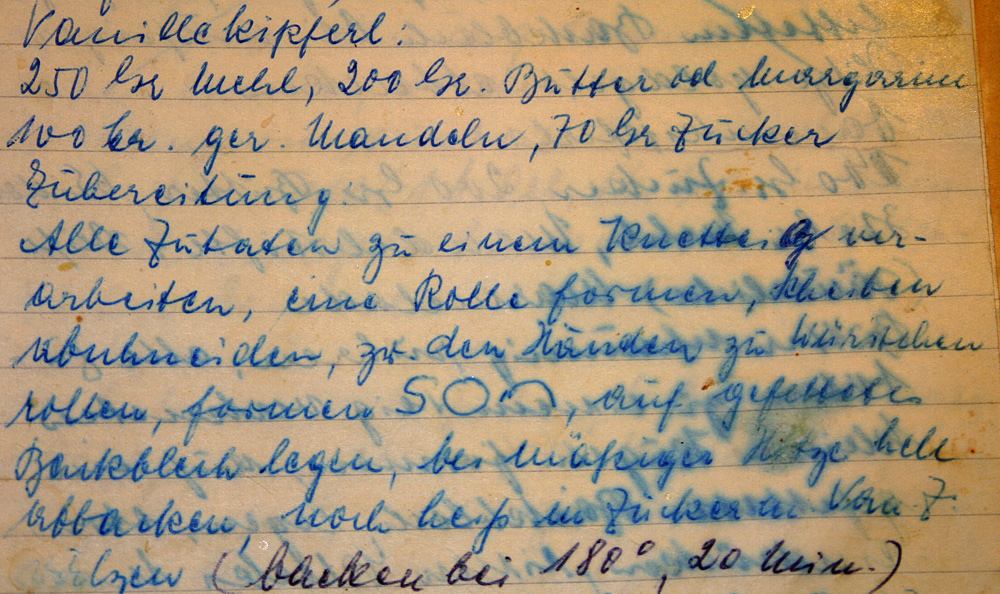 Vanillekipferl:
250 Gr Mehl, 200 Gr. Butter od Margarine
100 Gr. ger. Mandeln, 70 Gr Zucker
Zubereitung.
Alle Zutaten zu einem Knetteig ver-
arbeiten, eine Rolle formen, Scheiben
abschneiden, zw. den Händen zu Würstchen
rollen, formen S O, auf gefettetes
Backblech legen, bei mäßiger Hitze hell
abbacken, noch heiß in Zucker u Van. Z.
wälzen (backen bei 180°, 20 Min.)